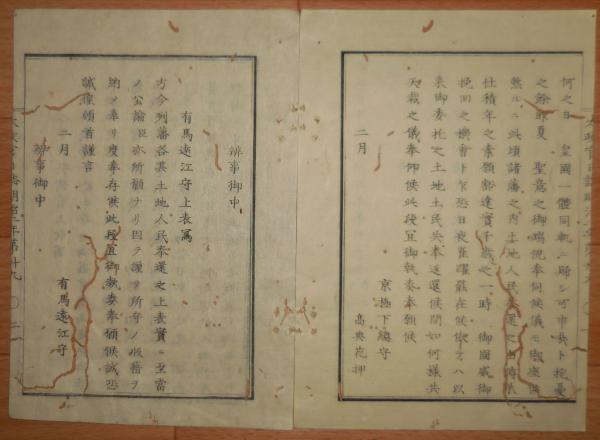 何之日 皇國一體同軌ニ歸シ可申哉ト抱憂
之餘昨夏 聖意之御端視奉伺候儀モ御座候
然ルニ此頃諸藩之内土地人民奉還之由傳承
仕積年之素願豁達實千歳之一時 御國威御
挽回之機會ト乍恐日夜雀躍罷在候依テハ以
来御委托之土地土民共奉返還候間如何様共
天裁之儀奉仰候此段宜御執奏奉願候
二月
京極下總守
高典花押
辨事御中
有馬遠江守上表寫
方今列藩各其土地人民奉還之上表實ニ至當
ノ公論臣亦所願ナリ因テ謹テ所守ノ版籍ヲ
納メ奉リ度奉存候此段宜御執奏奉願候誠恐
誠惶頓首謹言
二月
有馬遠江守
辨事御中